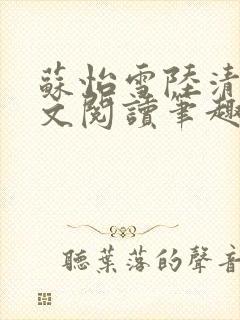 蘇怡雪陸清
文閱讀筆趣
聽葉落的聲音